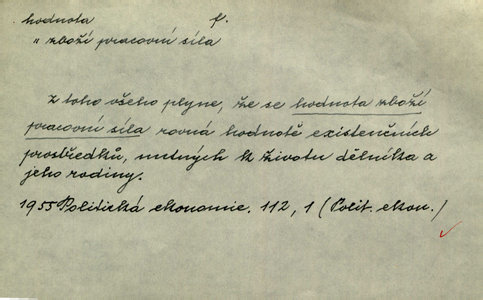 hodnota f.
" zboží pracovní síla
Z toho všeho plyne, že se hodnota zboží
pracovní síla rovná hodnotě existenčních
prostředků, nutných k životu dělníka a
jeho rodiny.
1955 Politická ekonomie. 112, 1 (Polit. ekon.)